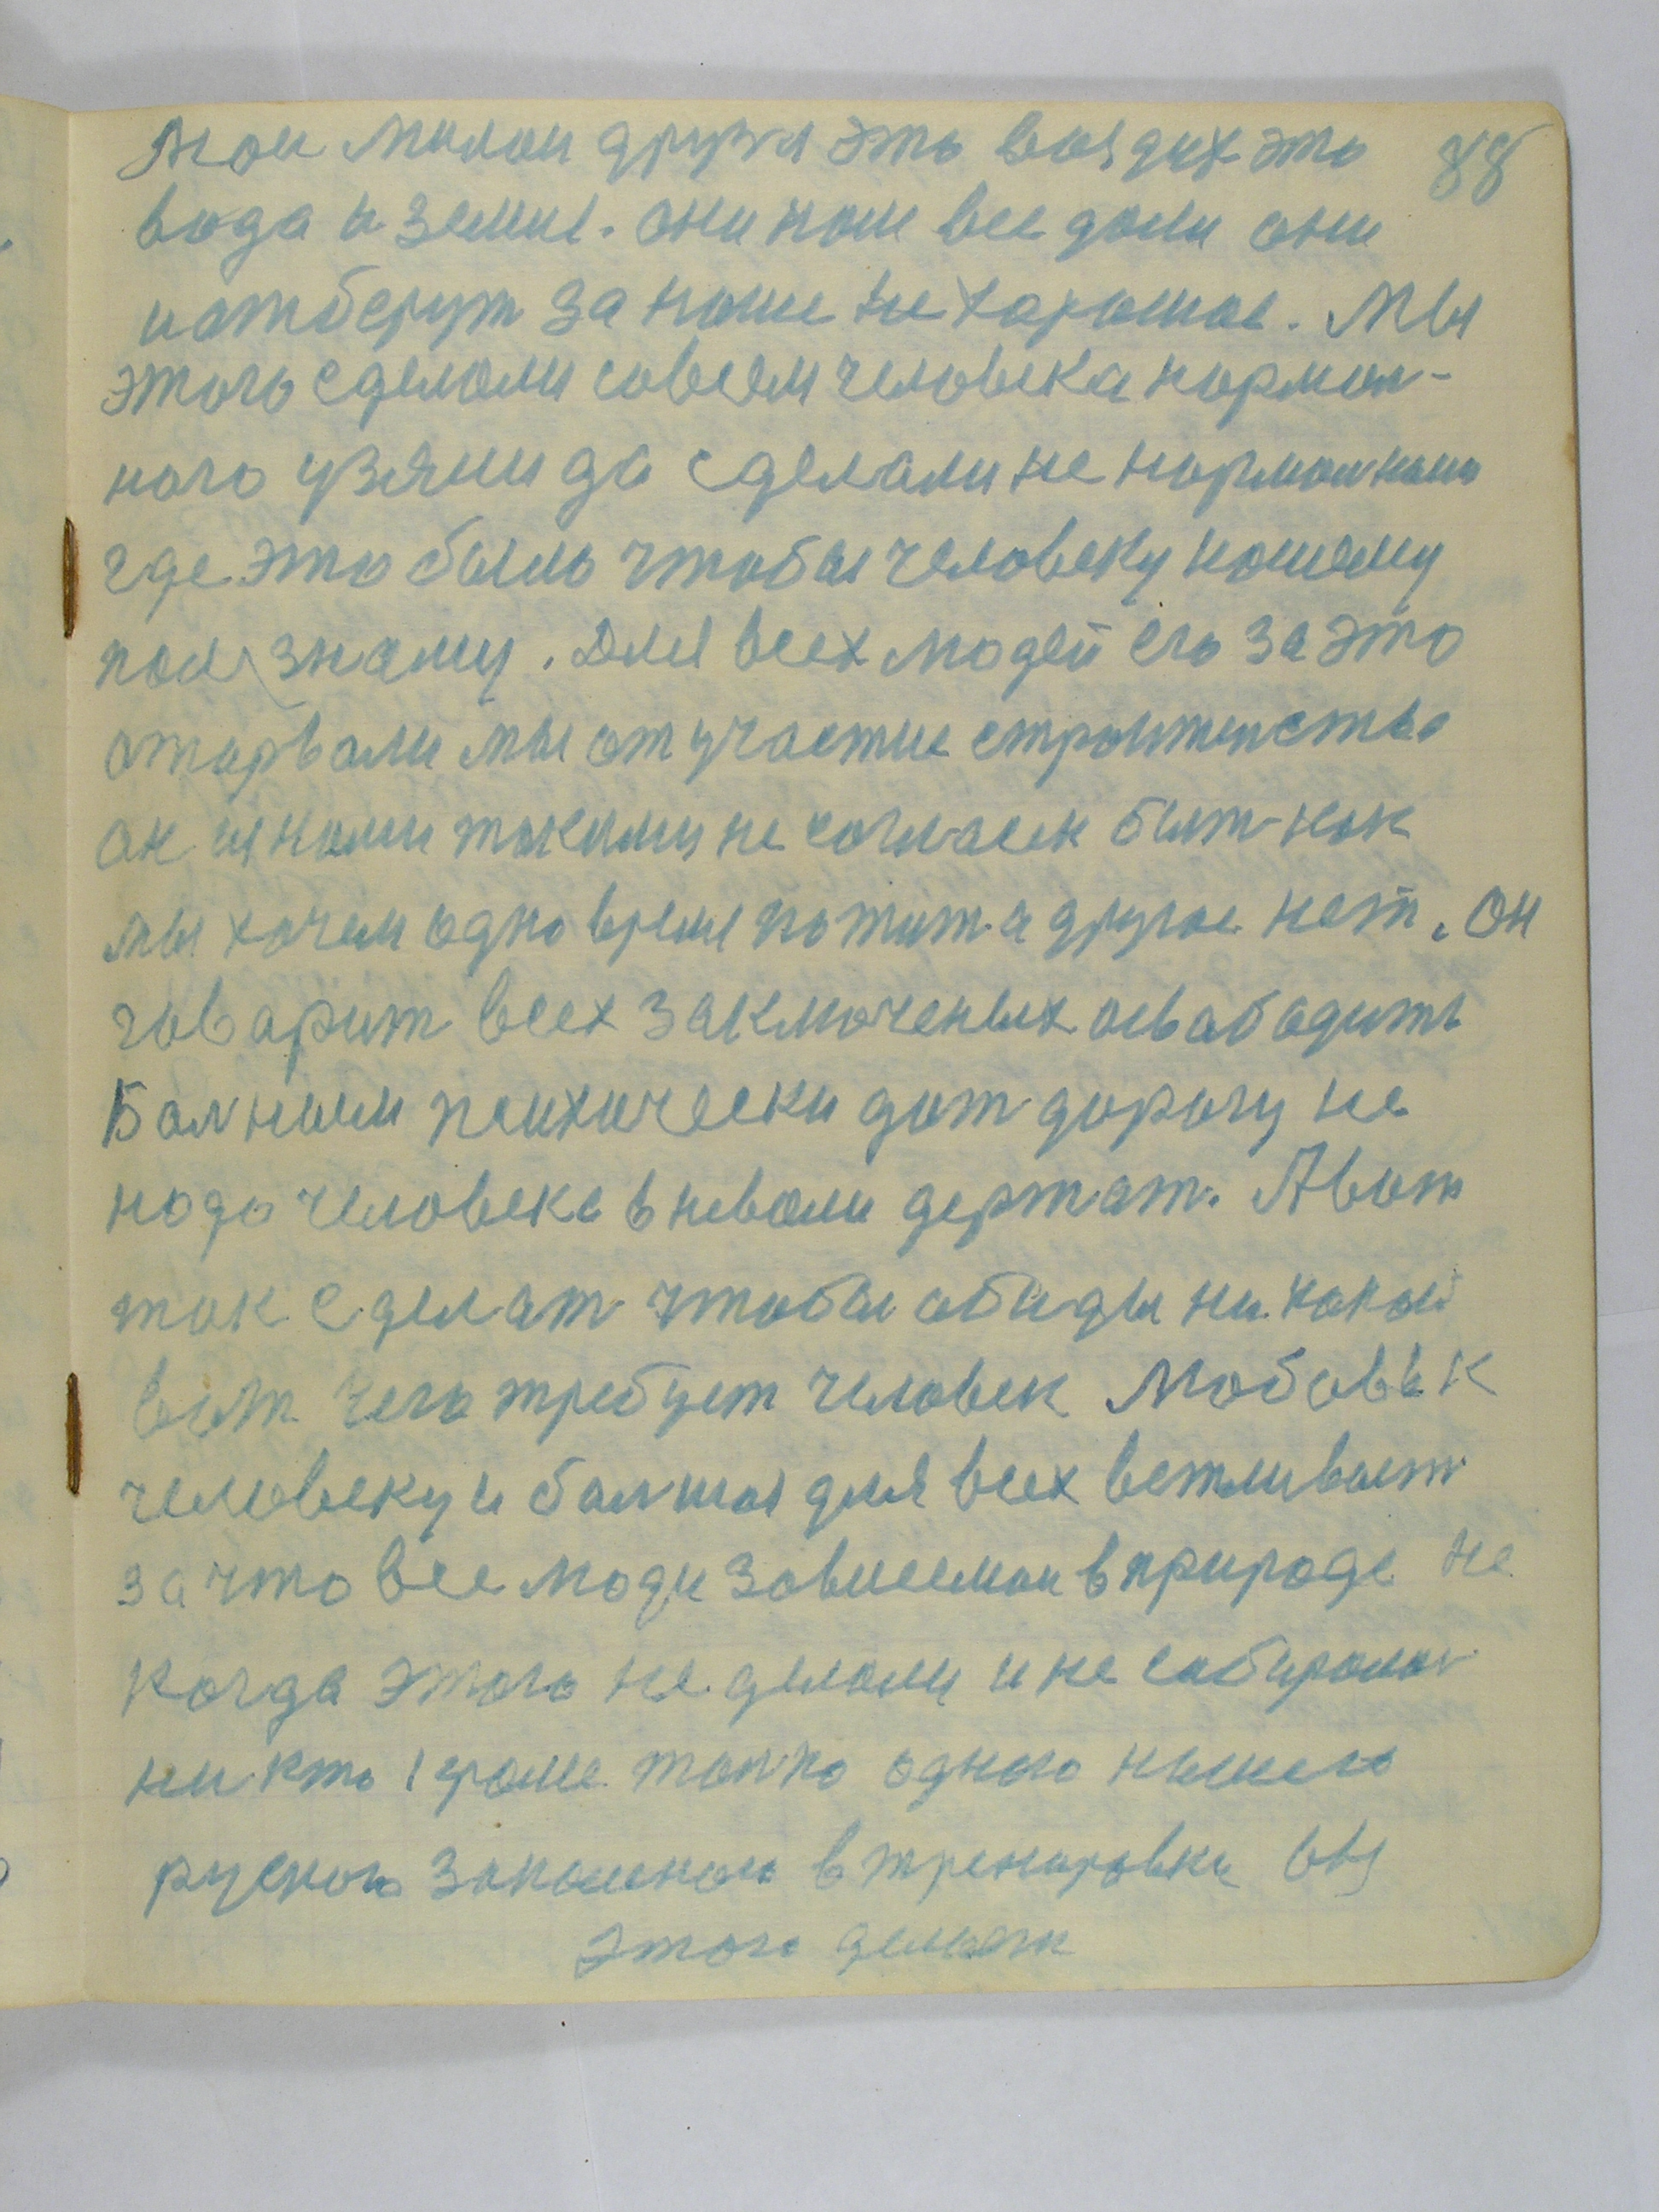 Мои милои друзя это воздух это 88
вода и земля. они нам все дали они
и отберут за наше не харошае. Мы
этого сделали совсем человека нормал-
ного узяли да сделали не нормалнаю
где это было чтобы человеку нашему
пол знаму. Для всех людей его за это
оторвали мы от участие строителства
он нами такими не согласен быт как
мы хочем одно время жит а другое нет. он
говарит всех заключеных асвабадить
Болным психически дат дорогу не
надо человека в неволи держат. А вот
так сделат чтобы обиды ни какой
вот чего требует человек Любовь к
человеку и болшая для всех ветливаст
за что все люди зависемаи в природе не
когда этого не делали и не сабиралис
ни кто кроме толко одного нашего
руского закалкаю в тренировки
этого делает